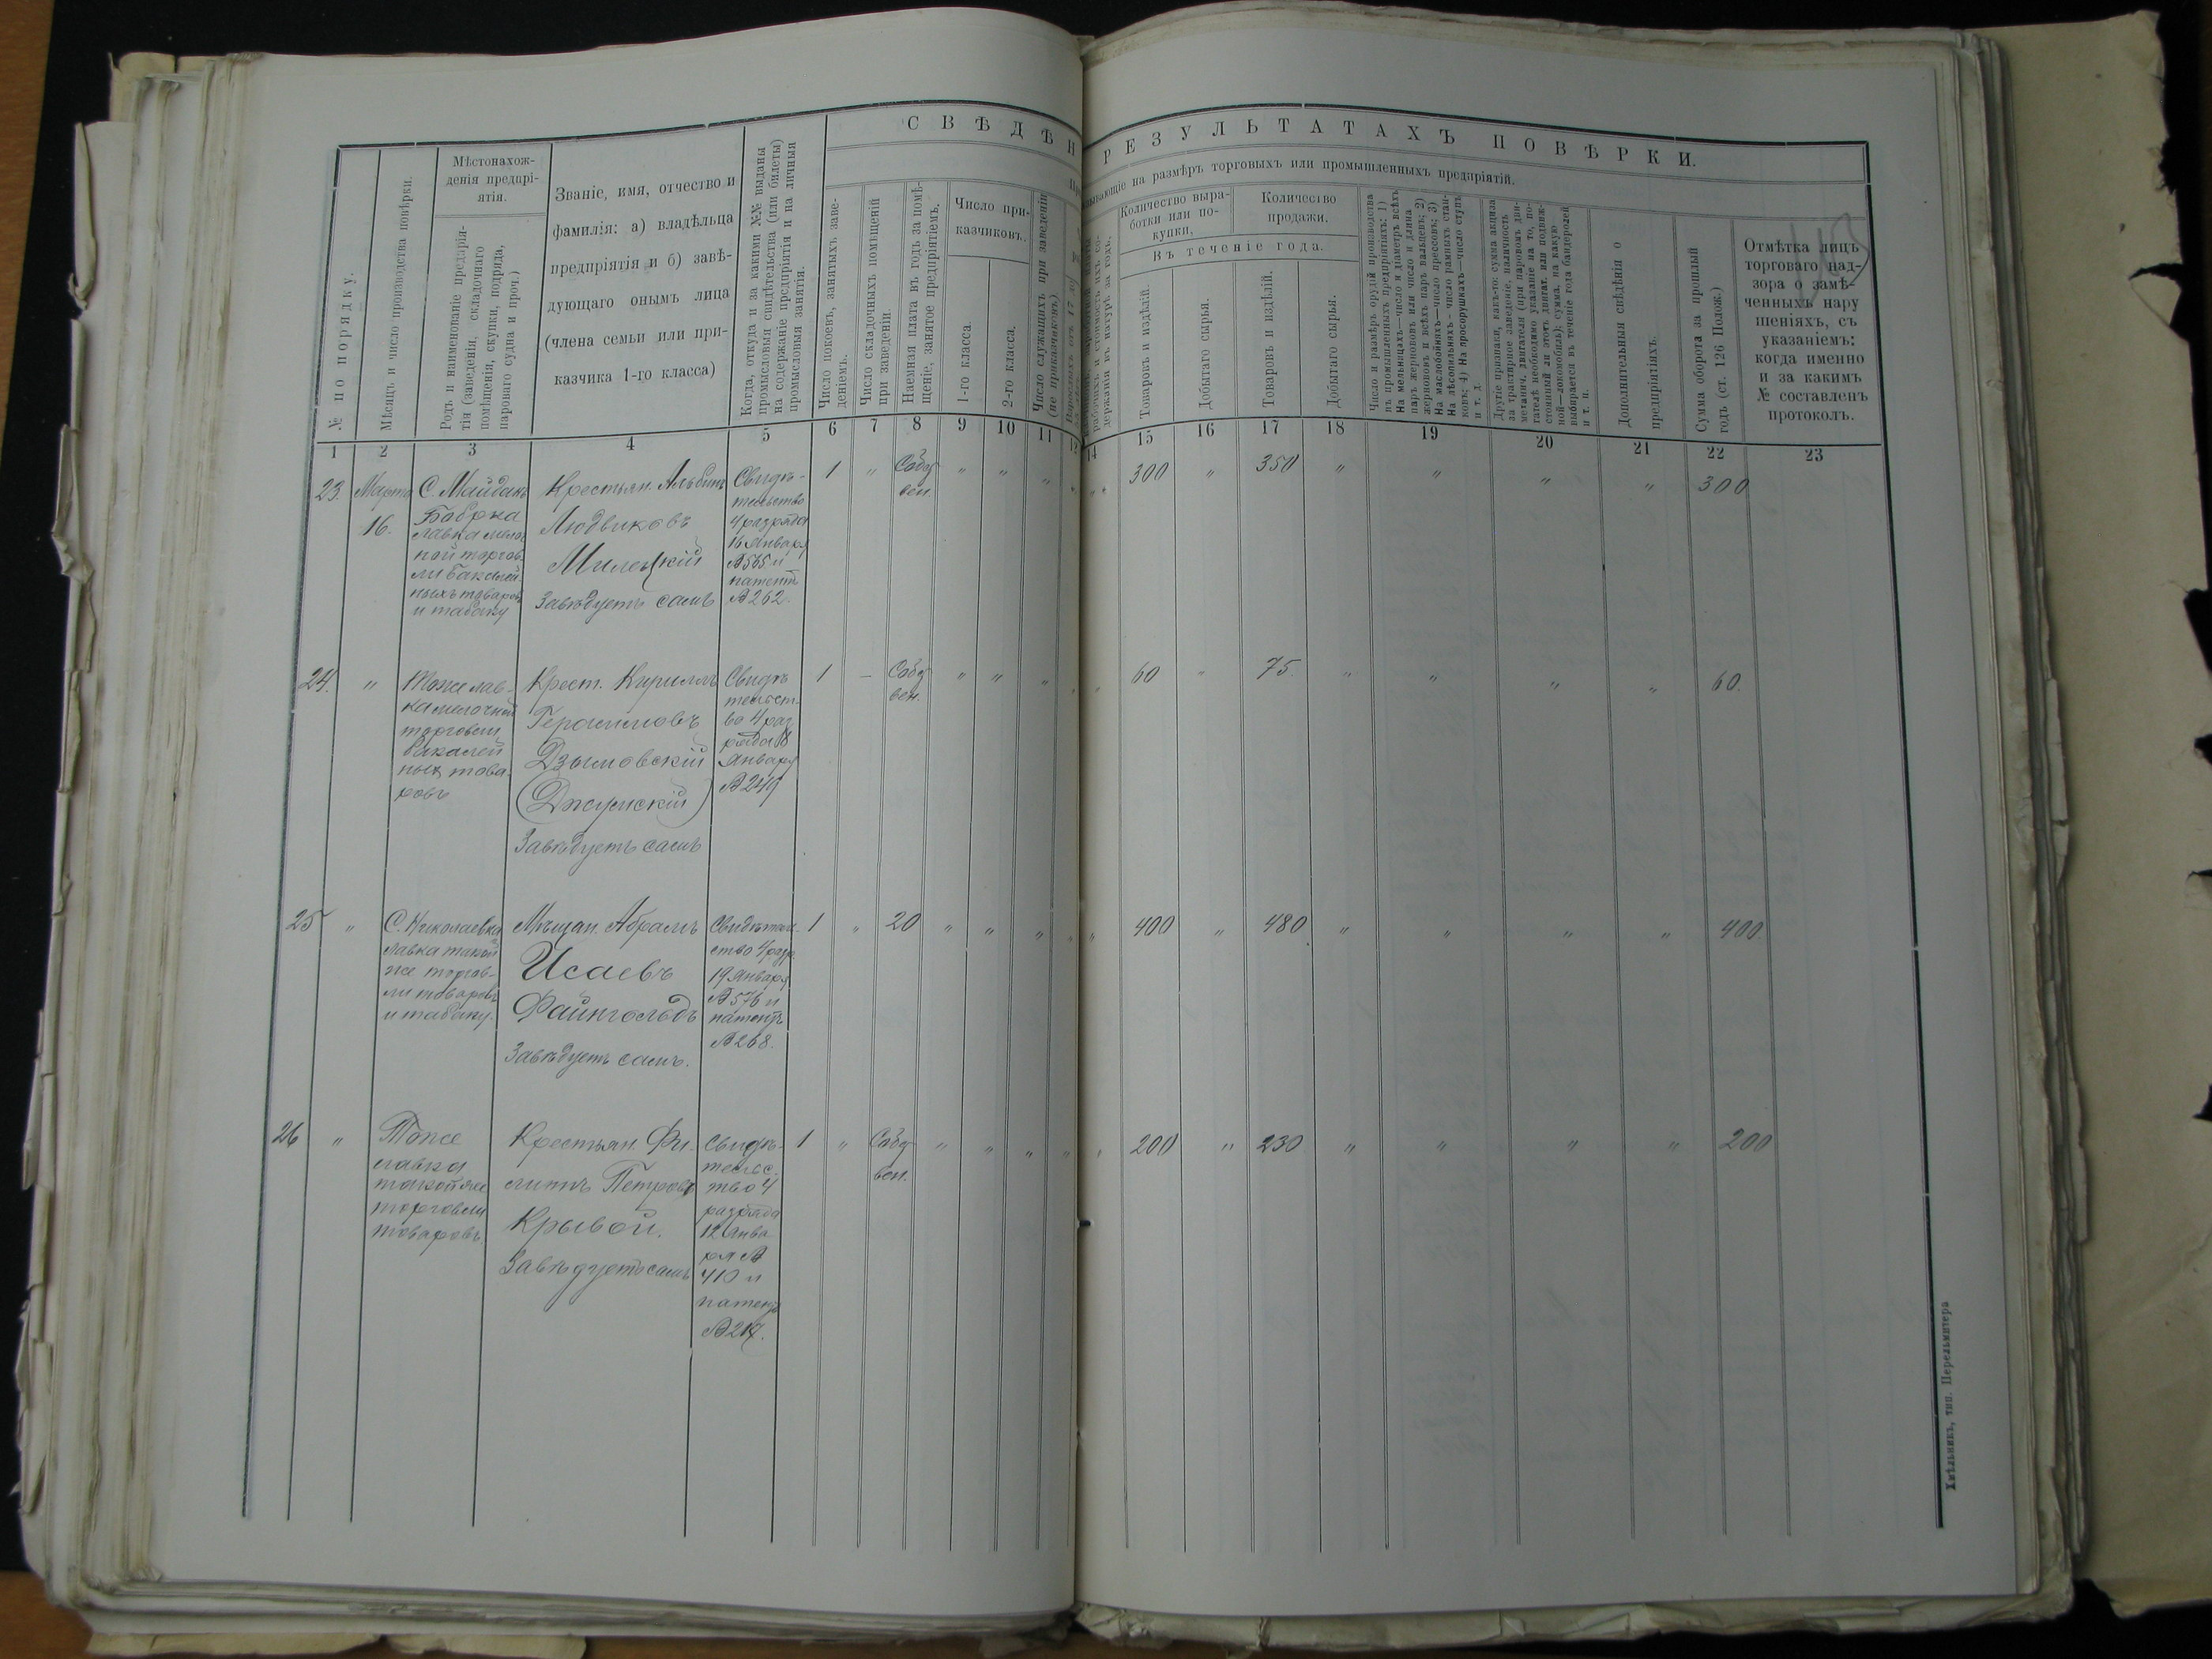 СВѢДѢН
РЕЗУЛЬТАТАХЪ ПОВѢРКИ.
ывающіе на размѣръ торговыхъ или промышленныхъ предпріятій.
№ по порядку.
Мѣсяцъ и число производства повѣрки.
Мѣстонахож-
денія предпрі-
ятія.
Родъ и наименованіе предпрія-
тія (заведенія, складочнаго
помѣщенія, скупки, подряда,
пароваго судна и проч.)
Званіе, имя, отчество и
фамилія: а) владѣльца
предпріятія и б) завѣ-
дующаго онымъ лица
(члена семьи или при-
казчика 1-го класса)
Когда, откуда и за какими №№ выданы
промысловыя свидѣтельства (или билеты)
на содержаніе предпріятія и на личныя
промысловыя занятія.
Число покоевъ, занятыхъ заве-
деніемъ.
Число складочныхъ помѣщеній
при заведеніи.
Наемная плата въ годъ за помѣ-
щеніе, занятое предпріятіемъ.
Число при-
казчиковъ.
1-го класса.
2-го класса.
Число служащихъ при заведеніи
(не приказчиковъ)
Количество выра-
ботки или по-
купки,
Количество
продажи.
Въ теченіе года.
Товаровъ и издѣлій.
Добытаго сырья.
Товаровъ и издѣлій.
Добытаго сырья.
Число и размѣръ орудій производства
въ промышленныхъ предпріятіяхъ: 1)
На мельницахъ—число и діаметръ всѣхъ
паръ жернововъ или число и длина
жернововъ и всѣхъ паръ вальцевъ; 2)
На маслобойняхъ—число прессовъ; 3)
На лѣсопильняхъ—число рамныхъ стан-
ковъ; 4) На просорушкахъ—число ступъ
и т. д.
Другіе признаки, какъ-то: сумма акциза
за трактирное заведеніе, наличность
механич. двигателя (при паровомъ дви-
гателѣ необходимо указаніе на то, по-
стоянный ли этотъ двигат. или подвиж-
ной—локомобиль); сумма, на какую
выбирается въ теченіе года бандеролей
и т. п.
Дополнительныя свѣдѣнія о
предпріятіяхъ.
Сумма оборота за прошлый
годъ (ст. 126 Полож.)
Отмѣтка лицъ
торговаго над-
зора о замѣ-
ченныхъ нару
шеніяхъ, съ
указаніемъ:
когда именно
и за какимъ
№ составленъ
протоколъ.
1 2 3 4 5 6 7 8 9 10 11 12 14 15 16 17 18 19 20 21 22 23
23. Марта
16.
С. Майданъ
Бобрка
лавка мелоч
ной торгов
ли бакалей
ныхъ товаровъ
и табаку
Крестьян. Альбинъ
Людвиковъ
Милецкій
Завѣдуетъ самъ
Свидѣ-
тельство
4 разряда
16 Января
№ 565 и
патентъ
№ 262.
1 " Собст
вен. " " " " " 300 " 350 " " " " 300
24. "
Тоже лав-
ка мелочной
торговли
бакалей
ныхъ това-
ровъ
Крест. Кириллъ
Герасимовъ
Дзымовскій
(Джумскій)
Завѣдуетъ самъ
Свидѣ
тельст-
во 4 раз
ряда 18
Января
№ 249
1 – Собст
вен. " " " " " 60 " 75. " " " " 60.
25 "
С. Николаевка
лавка такой
же торгов-
ли товаровъ
и табаку.
Мѣщан. Абрамъ
Исаевъ
Файнгольдъ
Завѣдуетъ самъ.
Свидѣтель-
ство 4 разр
19 Января
№ 576 и
патентъ
№ 268.
1 " 20 " " " " " 400 " 480 " " " " 400
26 "
Тоже
лавка
такой же
торговли
товаровъ.
Крестьян. Фи-
липпъ Петровъ
Крывой.
Завѣдуетъ самъ
Свидѣ-
тельс-
тво 4
разряда
12 Янва
ря №
410 и
патентъ
№ 217.
1 " Собст
вен. " " " " " 200 " 230 " " " " 200
Хмѣльникъ, тип. Перельмутера